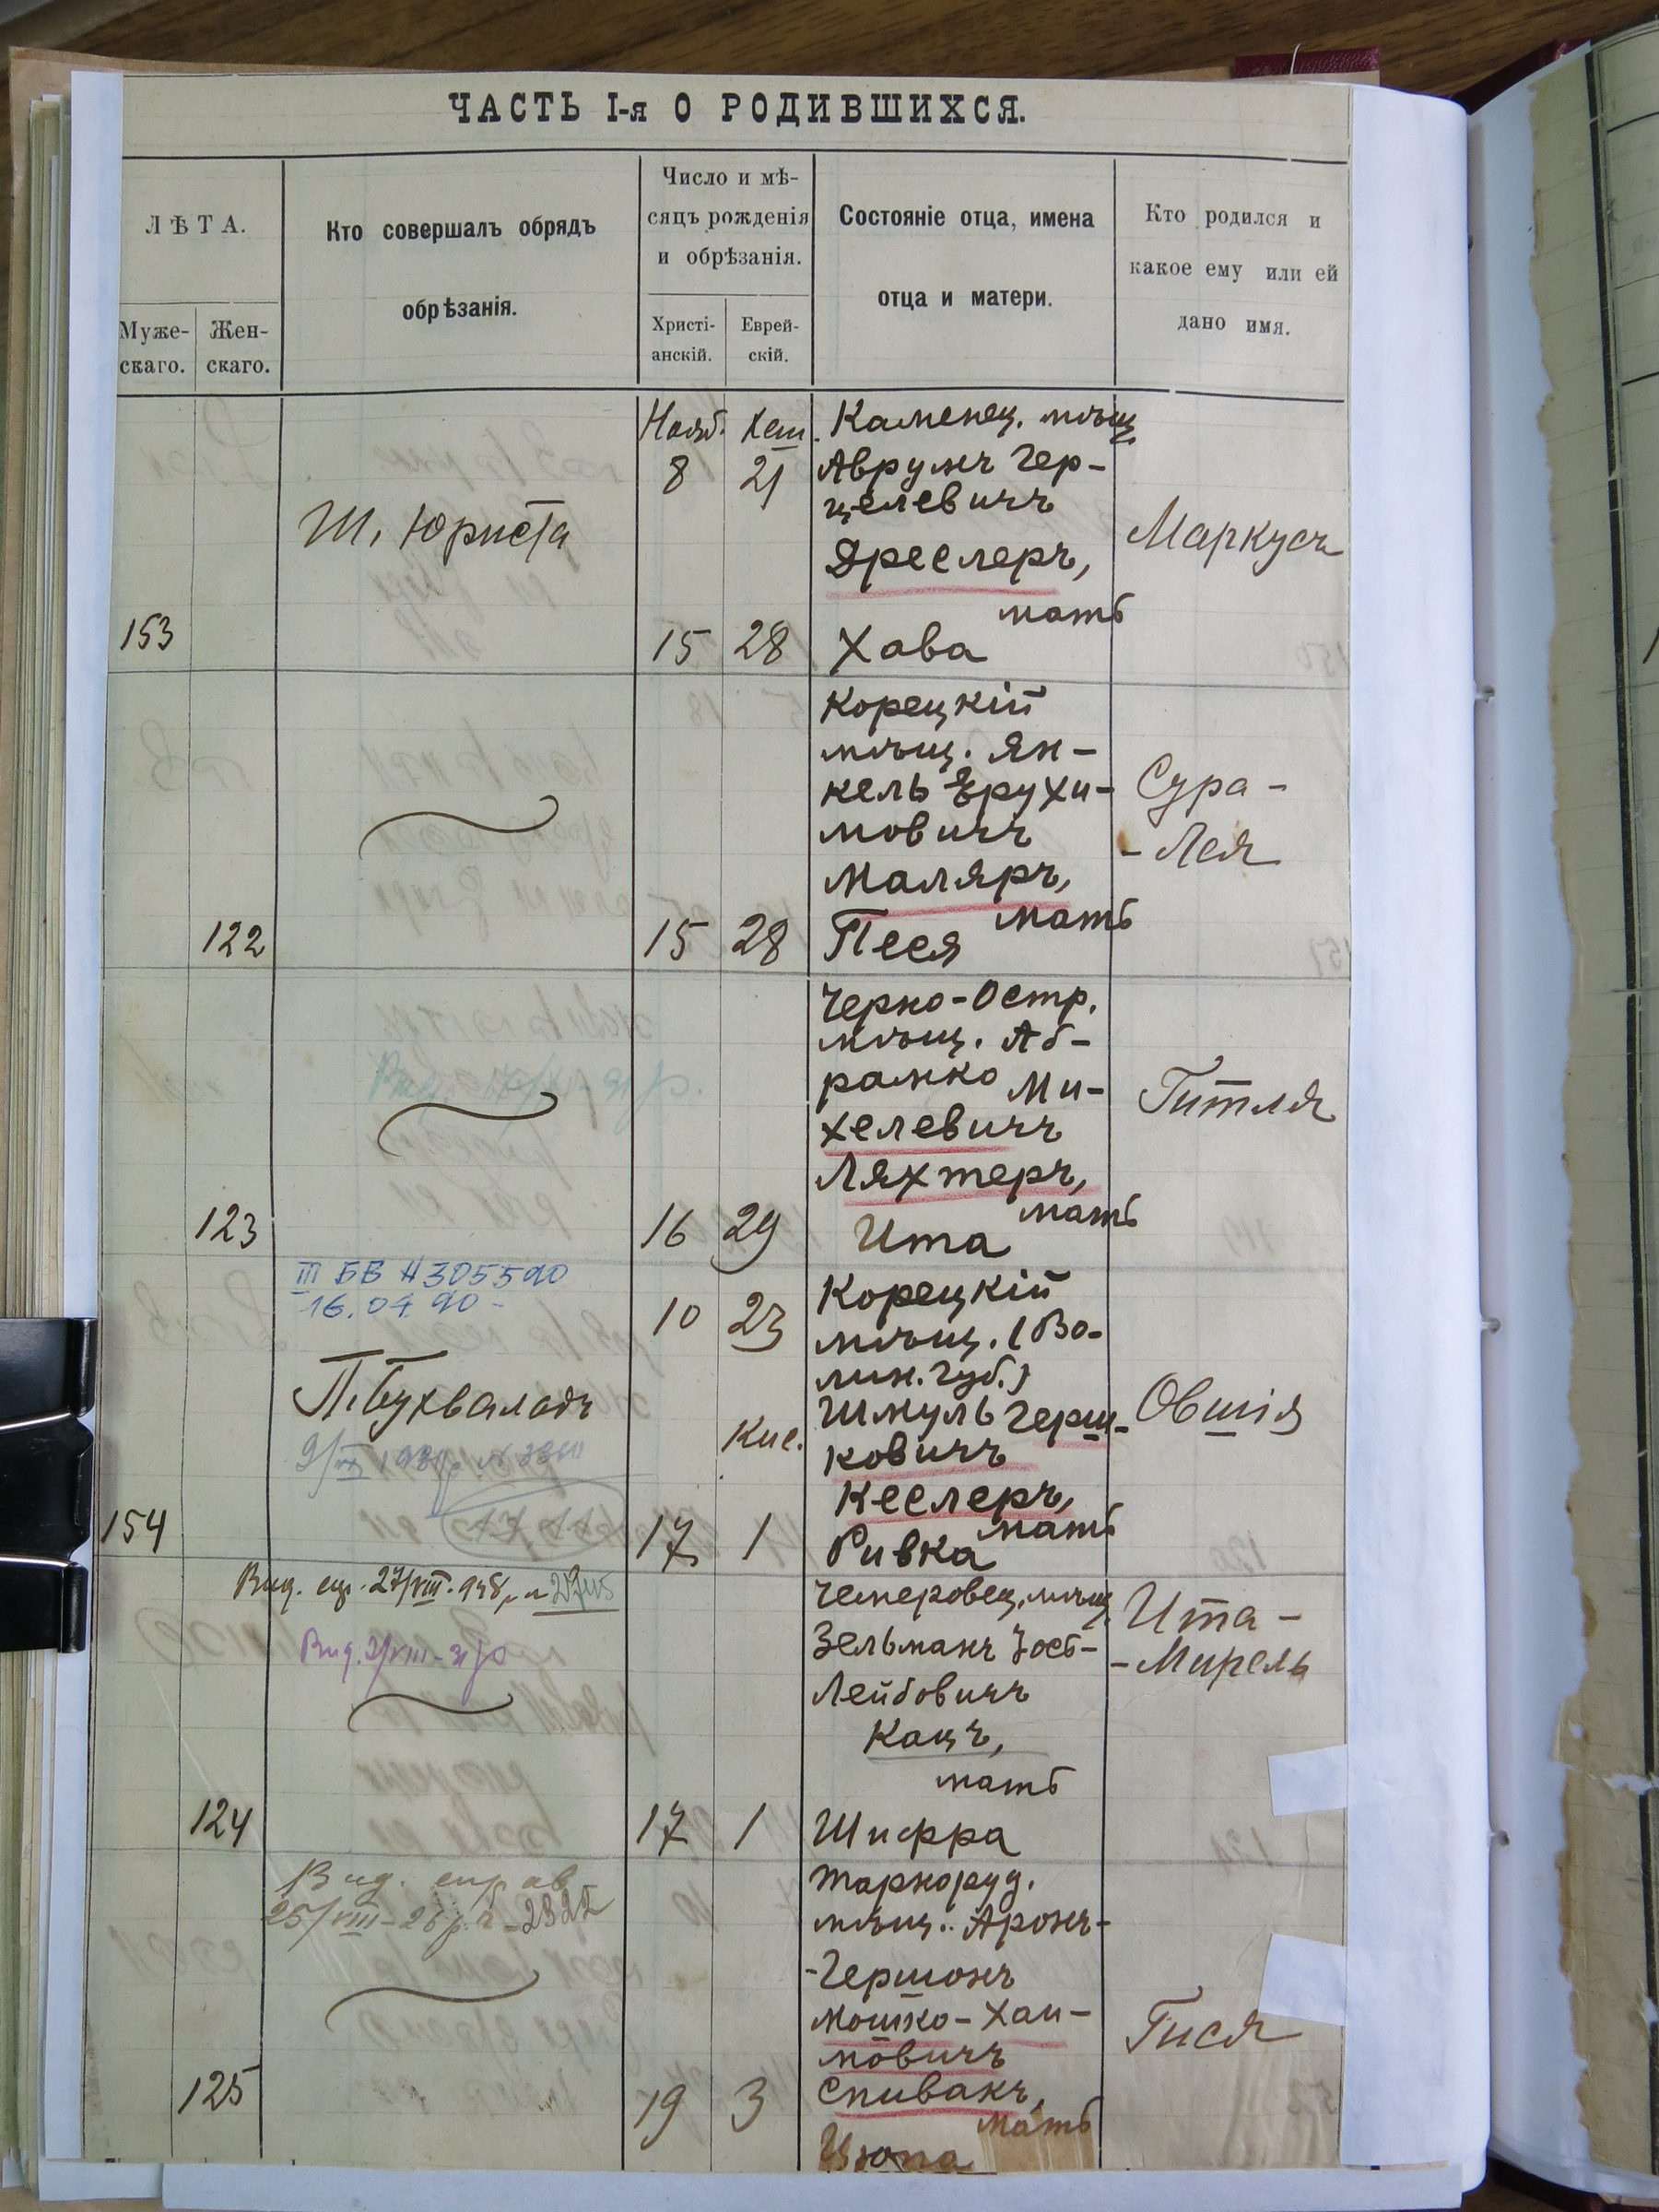 ЧАСТЬ I-я О РОДИВШИХСЯ.
ЛѢТА.
Муже-
скаго.
Жен-
скаго.
Кто совершалъ обрядъ
обрѣзанія.
Число и мѣ-
сяцъ рожденія
и обрѣзанія.
Христі-
анскій.
Еврей-
скій.
Состояніе отца, имена
отца и матери.
Кто родился и
какое ему или ей
дано имя.
Нояб. Хеш.
8 21
Ш. Юриста
153
15 28
Каменец. мѣщ.
Аврумъ Гер-
целевичъ
Дреслеръ,
мать
Хава
Маркусъ
122
15 28
Корецкій
мѣщ. Ян-
кель Ерухи-
мовичъ
Маляръ,
мать
Песя
Сура-
-Лея
123
16 29
Черно-Остр.
мѣщ. Аб-
рамко Ми-
хелевичъ
Ляхтеръ,
мать
Ита
Гитля
III БВ №305590
16.04 90-
10 23
П. Букваладъ
Кис.
154
17 1
Корецкій
мѣщ. (Во-
лин. губ.)
Шмуль Герш-
ковичъ
Кеслеръ,
мать
Ривка
Овшія
124
17 1
Чемеровец. мѣщ.
Зельманъ Іось-
Лейбовичъ
Кацъ,
мать
Шифра
Ита-
-Мирель
Вид. справ
25/VIII-26 р. ч-2322
125
19 3
Тарноруд.
мѣщ. Аронъ-
-Гершонъ
Мошко-Хаи-
мовичъ
Спивакъ,
мать
Гися